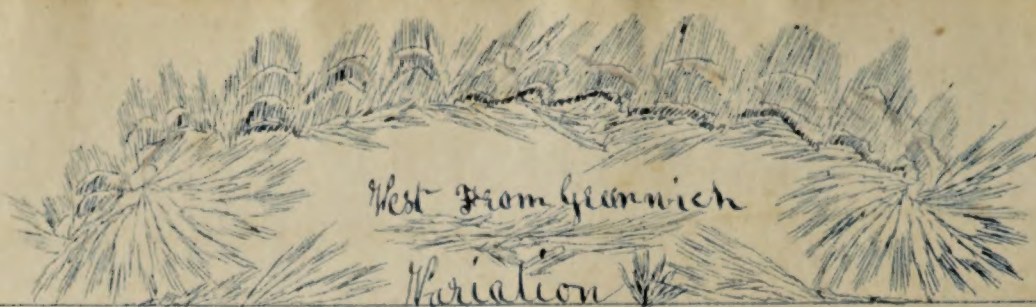 West From Greenwich
Variation